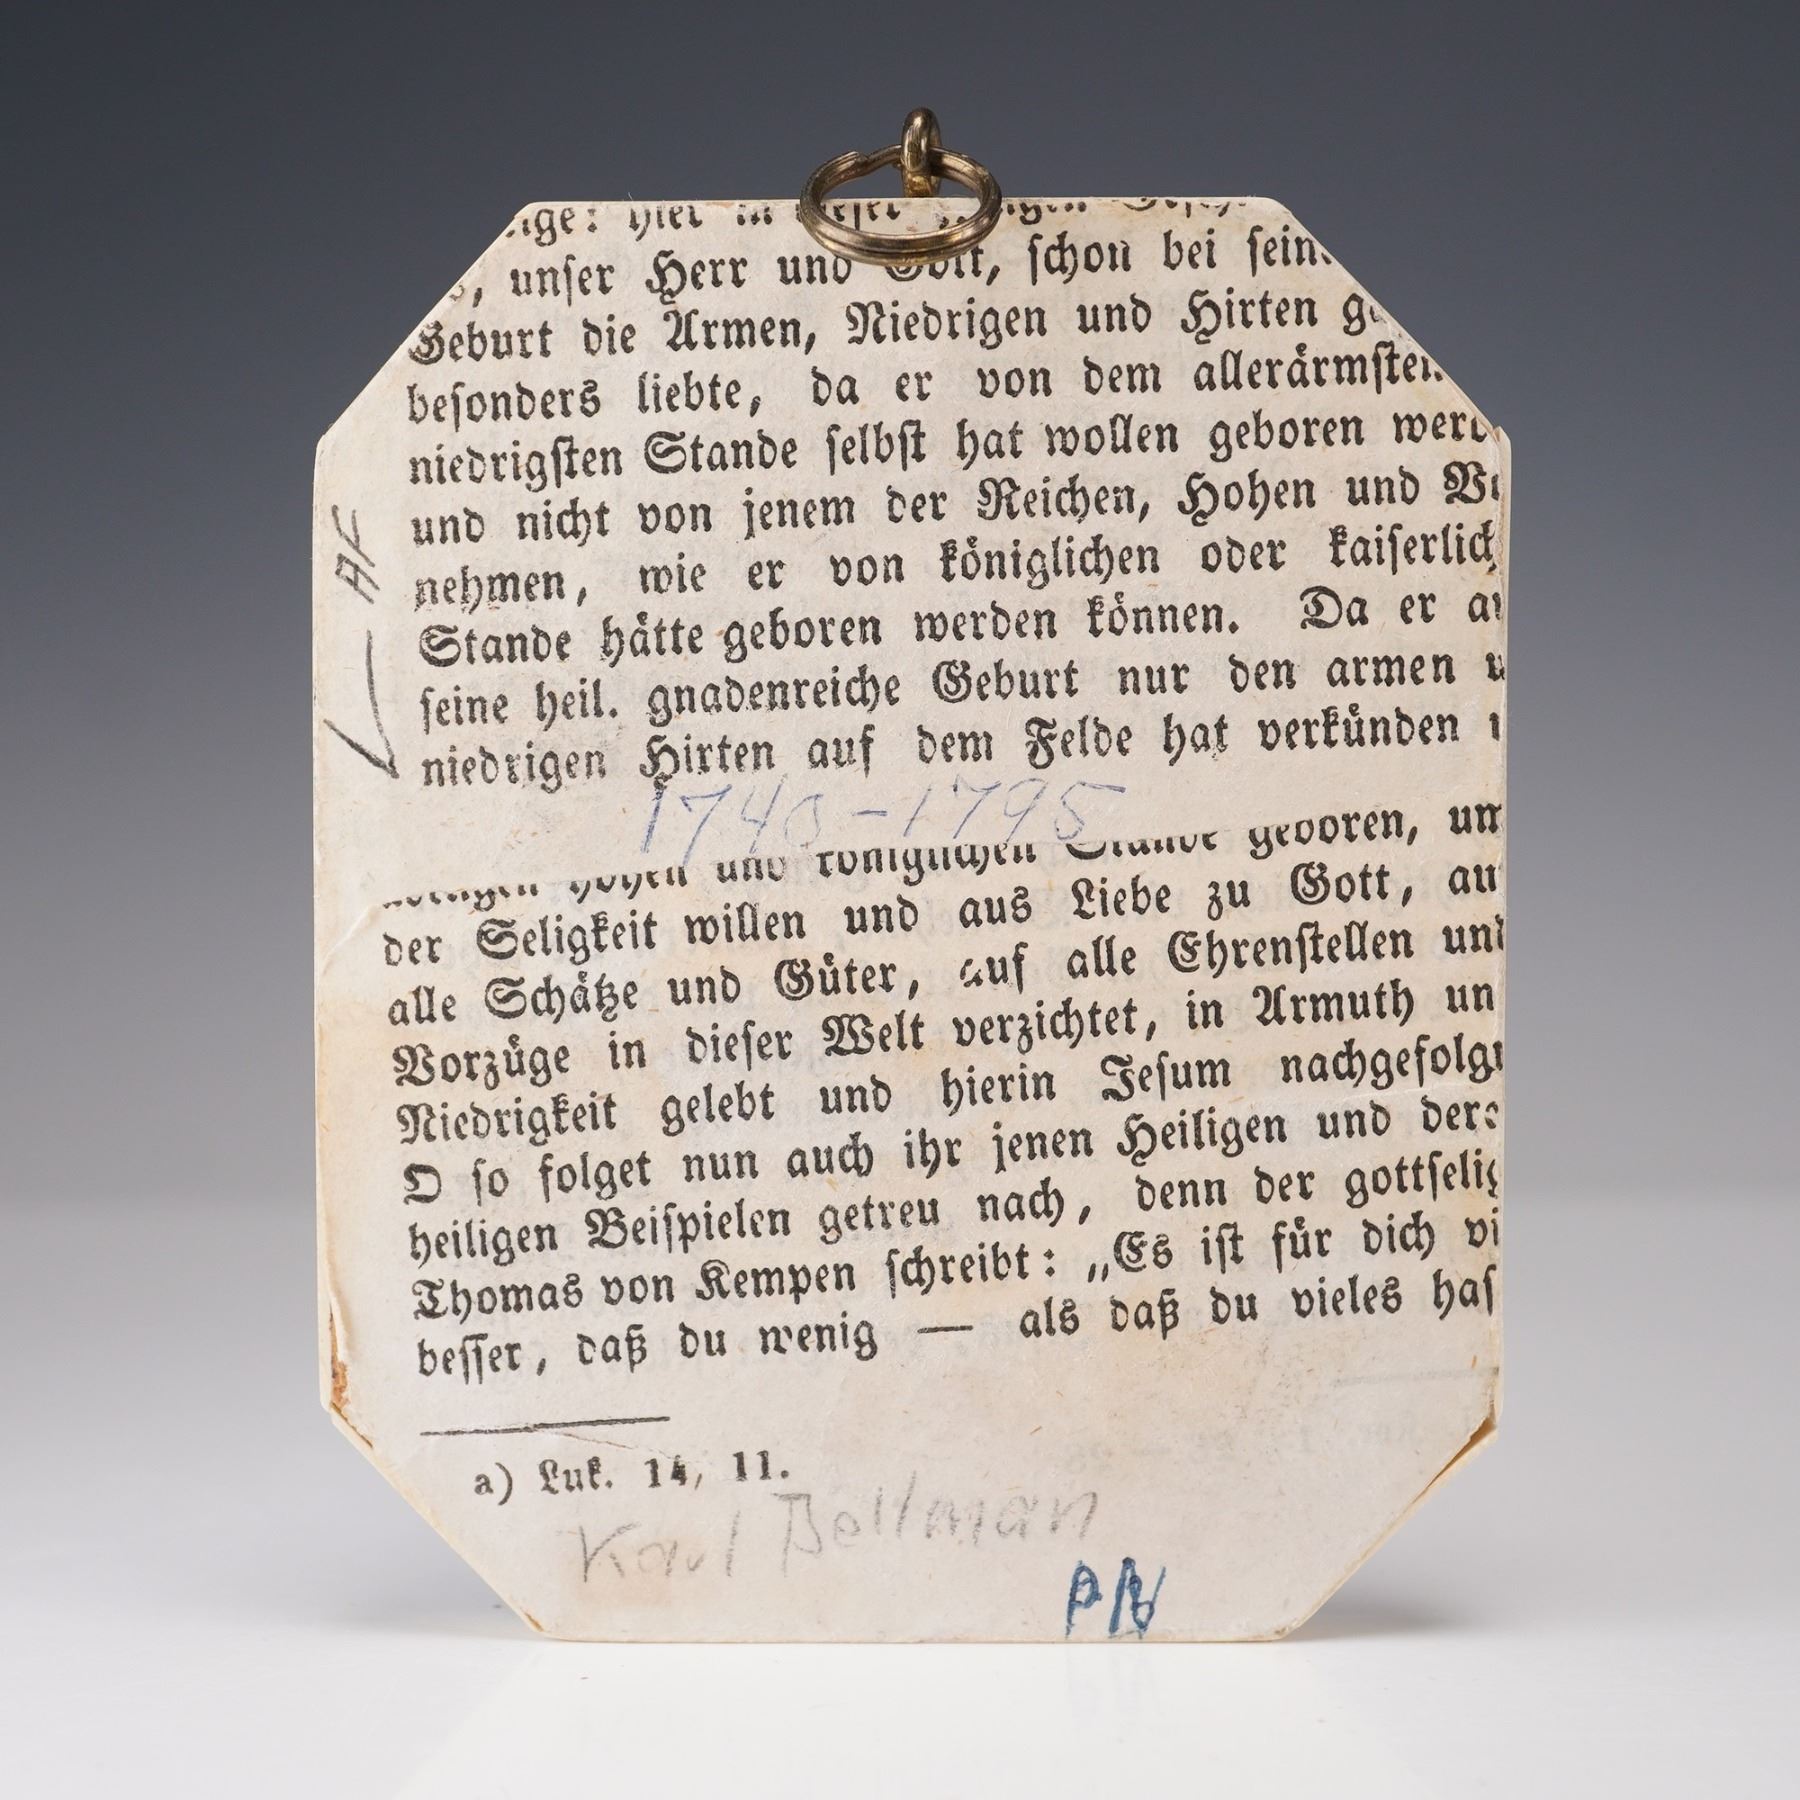 hier in
unser Herr und Gott, schon bei
Geburt die Armen, Niedrigen und Hirten
besonders liebte, da er von dem allerärmsten
niedrigsten Stande selbst hat wollen geboren
und nicht von jenem der Reichen, Hohen und
nehmen, wie er von königlichen oder kaiserlich
Stande hätte geboren werden können. Da er
seine heil. gnadenreiche Geburt nur den armen
niedrigen Hirten auf dem Felde hat verkünden
AF
1740-1795
hohen und königlichen Stande geboren, um
der Seligkeit willen und aus Liebe zu Gott, auf
alle Schätze und Güter, auf alle Ehrenstellen und
Vorzüge in dieser Welt verzichtet, in Armuth un
Niedrigkeit gelebt und hierin Jesum nachgefolgt
O so folget nun auch ihr jenen Heiligen und
heiligen Beispielen getreu nach, denn der gottselig
Thomas von Kempen schreibt: „Es ist für dich vi
besser, daß du wenig — als daß du vieles has
a) Luk. 14, 11.
Karl Bellman